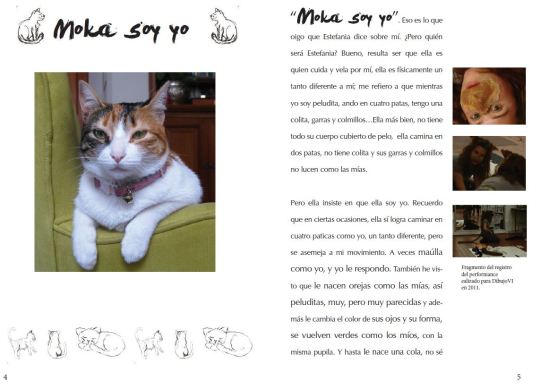 Moka soy yo
4
"Moka soy yo". Eso es lo que
oigo que Estefania dice sobre mí. ¿Pero quién
será Estefania? Bueno, resulta ser que ella es
quien cuida y vela por mí, ella es físicamente un
tanto diferente a mí; me refiero a que mientras
yo soy peludita, ando en cuatro patas, tengo una
colita, garras y colmillos...Ella más bien, no tiene
todo su cuerpo cubierto de pelo, ella camina en
dos patas, no tiene colita y sus garras y colmillos
no lucen como las mías.
Pero ella insiste en que ella soy yo. Recuerdo
que en ciertas ocasiones, ella sí logra caminar en
cuatro paticas como yo, un tanto diferente, pero
se asemeja a mi movimiento. A veces maúlla
como yo, y yo le respondo. También he vis-
to que le nacen orejas como las mías, así
peluditas, muy, pero muy parecidas y ade-
más le cambia el color de sus ojos y su forma,
se vuelven verdes como los míos, con la
misma pupila. Y hasta le nace una cola, no sé
Fragmento del registro
del performance
ealizado para DibujoVI
en 2011.
5